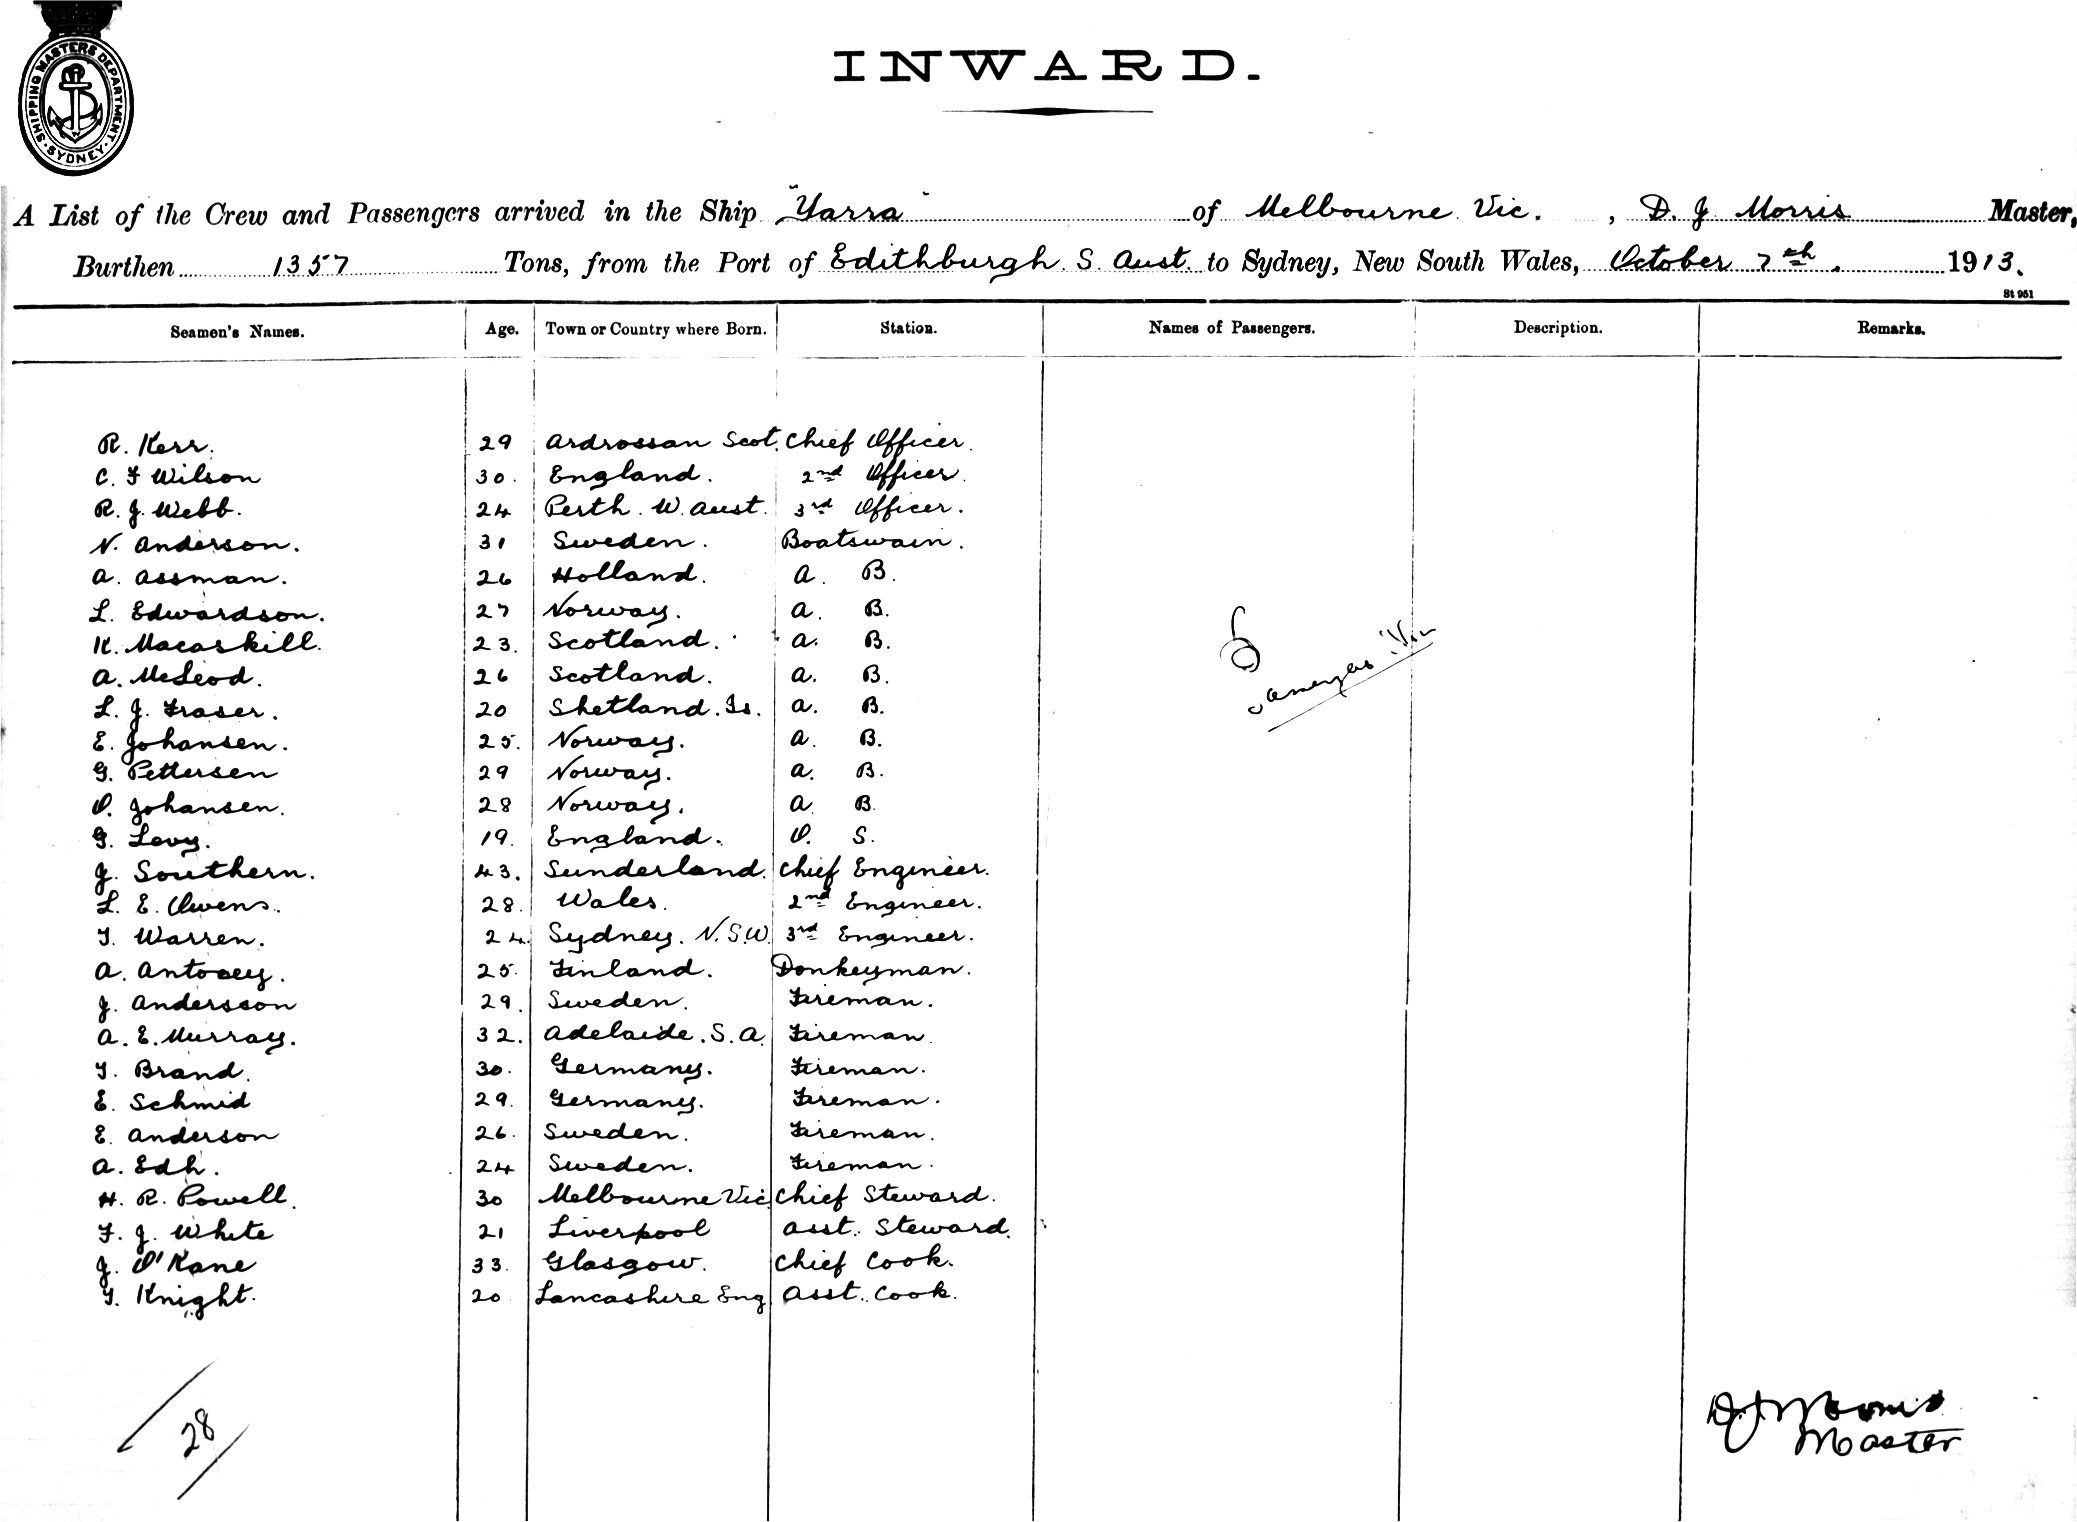 SHIPPING MASTERS DEPARTMENT. SYDNEY.
INWARD.
A List of the Crew and Passengers arrived in the Ship "Yarra" of Melbourne Vic. , D. J Morris Master,
Burthen 1357 Tons, from the Port of Edithburgh S. Aust. to Sydney, New South Wales, October 7th. 1913.
St 951
Seamen's Names. Age. Town or Country where Born. Station. Names of Passengers. Description. Remarks.
R. Kerr. 29 Ardrossan Scot. Chief Officer.
C. F Wilson 30. England. 2nd Officer.
R. J. Webb. 24 Perth. W. Aust. 3rd Officer.
N. Anderson. 31 Sweden. Boatswain.
A. Assman. 26 Holland. A. B.
L. Edwardson. 27 Norway. A. B.
K. Macaskill. 23. Scotland. A. B.
A. McLeod. 26 Scotland. A. B.
L. J. Fraser. 20 Shetland. Is. A. B.
E. Johansen. 25. Norway. A. B.
G. Pettersen 29 Norway. A. B.
O. Johansen. 28 Norway. A. B.
G. Levy. 19. England. O. S.
J. Southern. 43. Sunderland. Chief Engineer.
L. E. Owens. 28. Wales. 2nd Engineer.
T. Warren. 24. Sydney. N.S.W. 3rd Engineer.
A. 25. Finland. Donkeyman.
J. Andersson 29. Sweden. Fireman.
A. E. Murray. 32. Adelaide. S. A. Fireman.
T. Brand. 30. Germany. Fireman.
E. Schmid 29. Germany. Fireman.
E. Anderson 26. Sweden. Fireman.
A. Edh. 24 Sweden. Fireman.
H. R. Powell. 30 Melbourne Vic Chief Steward.
F. J. White 21 Liverpool Asst. Steward.
J. O'Kane 33. Glasgow. Chief Cook.
T. Knight. 20 Lancashire Eng Asst. Cook.
28
D. J. Morris
Master